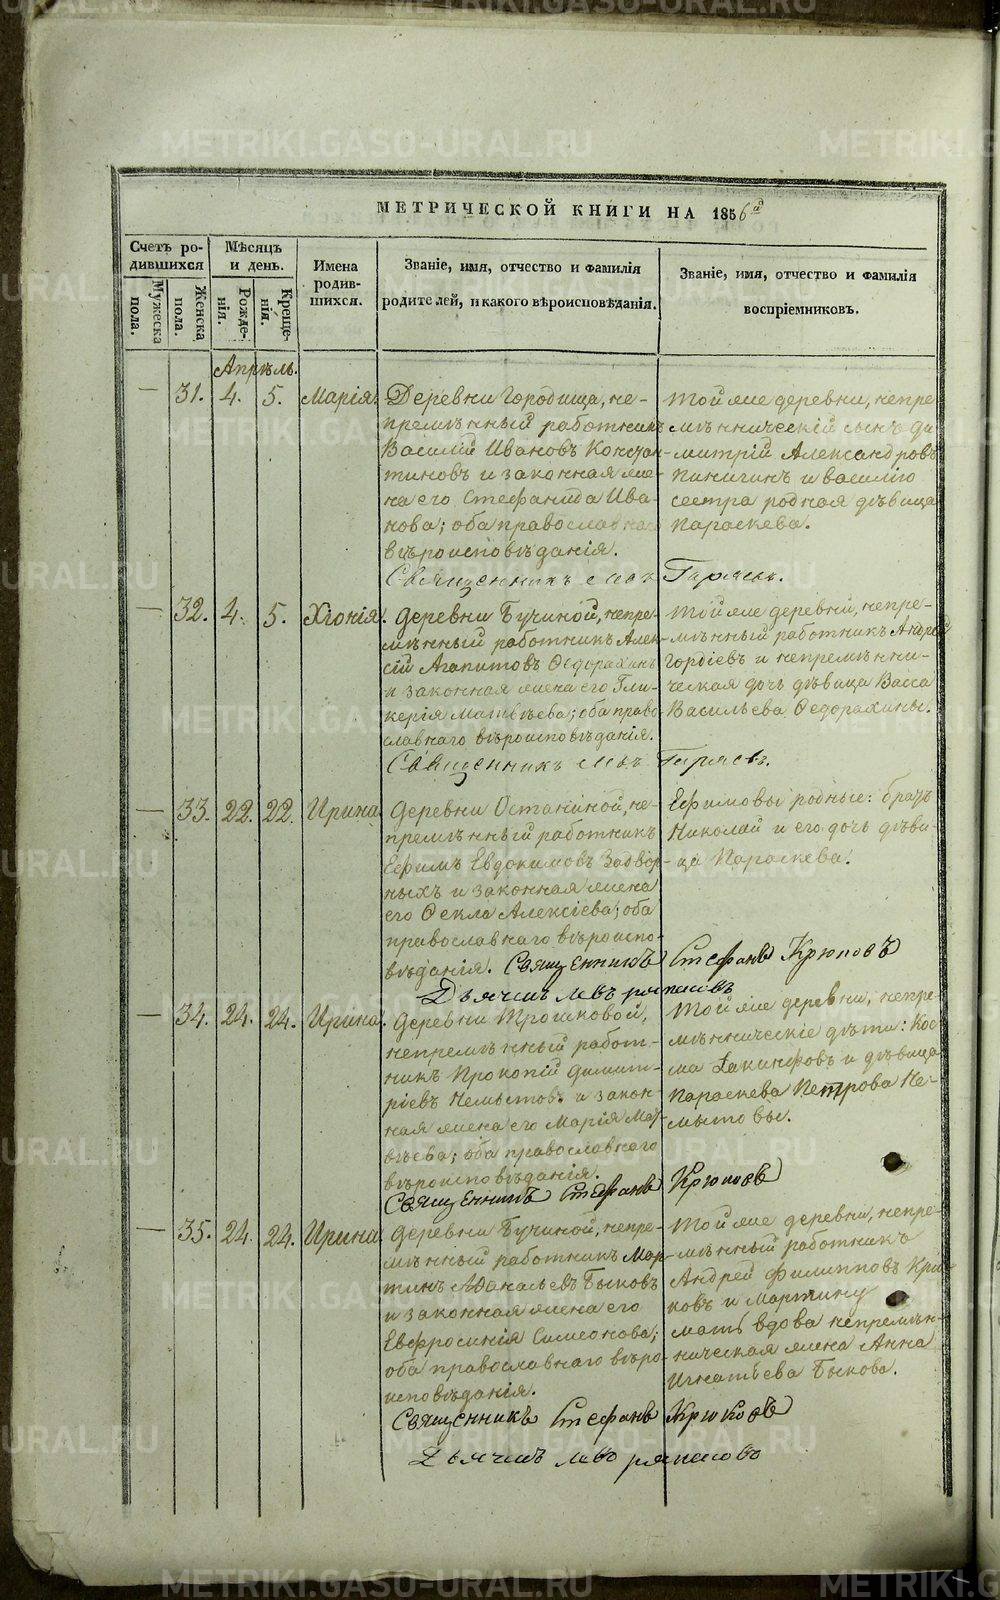 METRIKI.GASO-URAL.RU
МЕТРИЧЕСКОЙ КНИГИ НА 1856й
Счетъ родившихся
Мужеска пола.
Женска пола.
Мѣсяцъ и день.
Рожденія.
Крещенія.
Имена родившихся.
Званіе, имя, отчество и фамилія
родителей, и какого вѣроисповѣданія.
Званіе, имя, отчество и фамилія
воспріемниковъ.
Апрѣль.
— 31. 4. 5. Марія.
Деревни Городища, не-
премѣнный работникъ
Василій Ивановъ Констан-
тиновъ и законная же-
на его Стефанида Ива-
нова; оба православнаго
вѣроисповѣданія.
Той же деревни, непре-
мѣнническій сынъ Ди-
митрій Александровъ
Пинигинъ и Василію
сестра родная дѣвица
Параскева.
Священникъ
— 32. 4. 5. Хіонія.
Деревни Бучиной, непре-
мѣнный работникъ Алек-
сій Агапитовъ Ѳедорахинъ
и законная жена его Гли-
керія Матвѣева; оба право-
славнаго вѣроисповѣданія.
Той же деревни, непре-
мѣнный работникъ Андрей
Гордіевъ и непремѣнни-
ческая дочь дѣвица Васса
Васильева Ѳедорахины.
Священникъ
— 33. 22. 22. Ирина
Деревни Останиной, не-
премѣнный работникъ
Ефимъ Евдокимовъ Задвор-
ныхъ и законная жена
его Ѳекла Алексіева; оба
православнаго вѣроиспо-
вѣданія.
Ефимовы родные: братъ
Николай и его дочь дѣви-
ца Параскева.
Священникъ Стефанъ Крюковъ
Дьячекъ Левъ
— 34. 24. 24. Ирина.
Деревни Трошковой,
непремѣнный работ-
никъ Прокопій Димит-
ріевъ Немытовъ и закон-
ная жена его Марія Мат-
вѣева; оба православнаго
вѣроисповѣданія.
Той же деревни, непре-
мѣнническіе дѣти: Кос-
ма Іакинфовъ и дѣвица
Параскева Петрова Не-
мытовы.
Священникъ Стефанъ Крюковъ
— 35. 24. 24. Ирина
Деревни Бучиной, непре-
мѣнный работникъ Мар-
тинъ Аѳанасьевъ Быковъ
и законная жена его
Евфросинія Симеонова;
оба православнаго вѣро-
исповѣданія.
Той же деревни, непре-
мѣнный работникъ
Андрей Филипповъ
и Мартину
мать вдова непремѣн-
ническая жена Анна
Игнатьева Быкова.
Священникъ Стефанъ Крюковъ
Дьячекъ Левъ